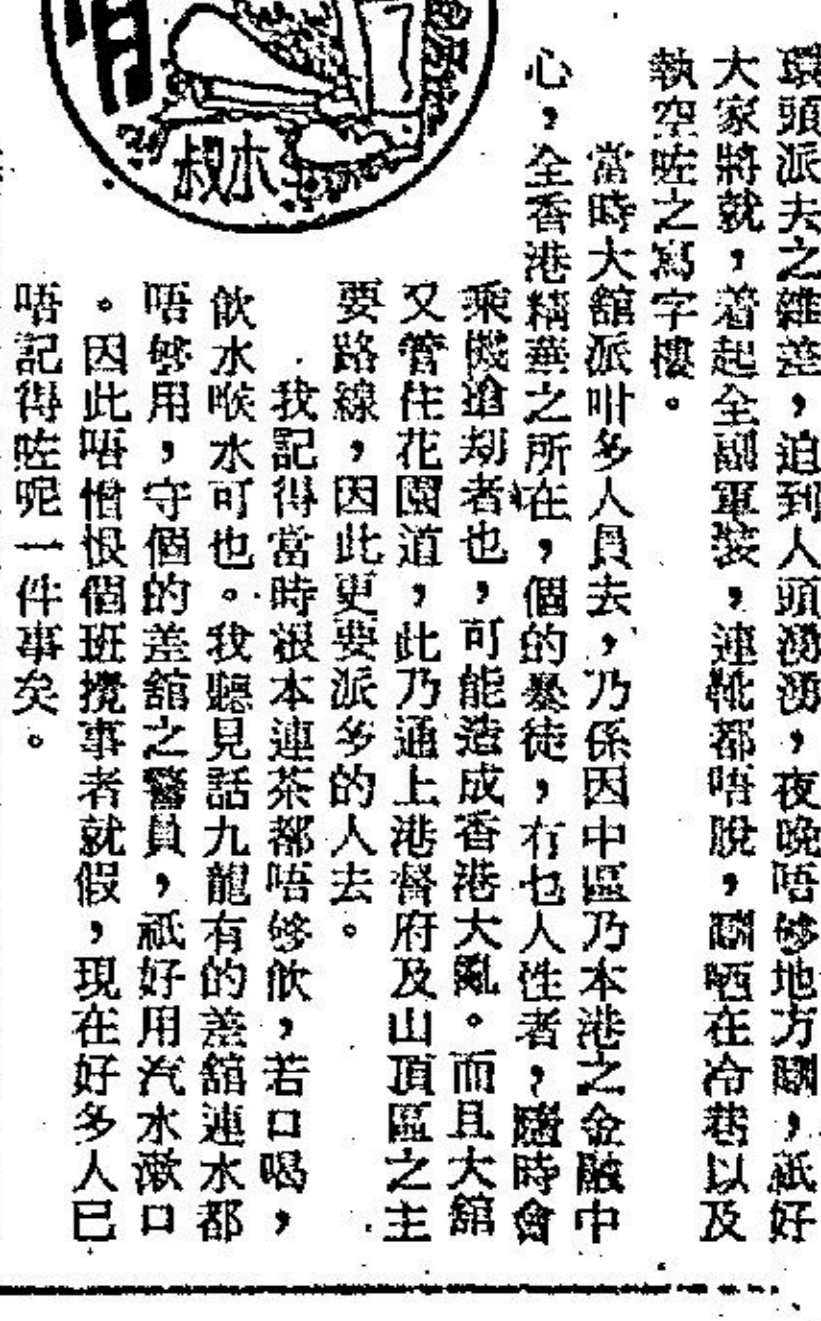 環頭派夫之雜差,迫到人頭湧湧,夜晚唔够地方瞓,祇好
大家將就,着起全副軍裝,連靴都唔脫,瞓晒在冷巷以及
執空咗之寫字樓。
當時大舘派咁多人員去,乃係因中區乃本港之金融中
心,全香港精華之所在,個的暴徒,冇乜人性者,隨時會
乘機搶刼者也,可能造成香港大亂。而且大舘
又管住花園道,此乃通上港督府及山頂區之主
要路線,因此更要派多的人去。
我記得當時根本連茶都唔够飲,若口喝,
飲水喉水可也。我聽見話九龍有的差舘連水都
唔够用,守個的差舘之警員,祇好用汽水漱口
。因此唔憎恨個班攪事者就假,現在好多人已
唔記得咗呢一件事矣。
木叔